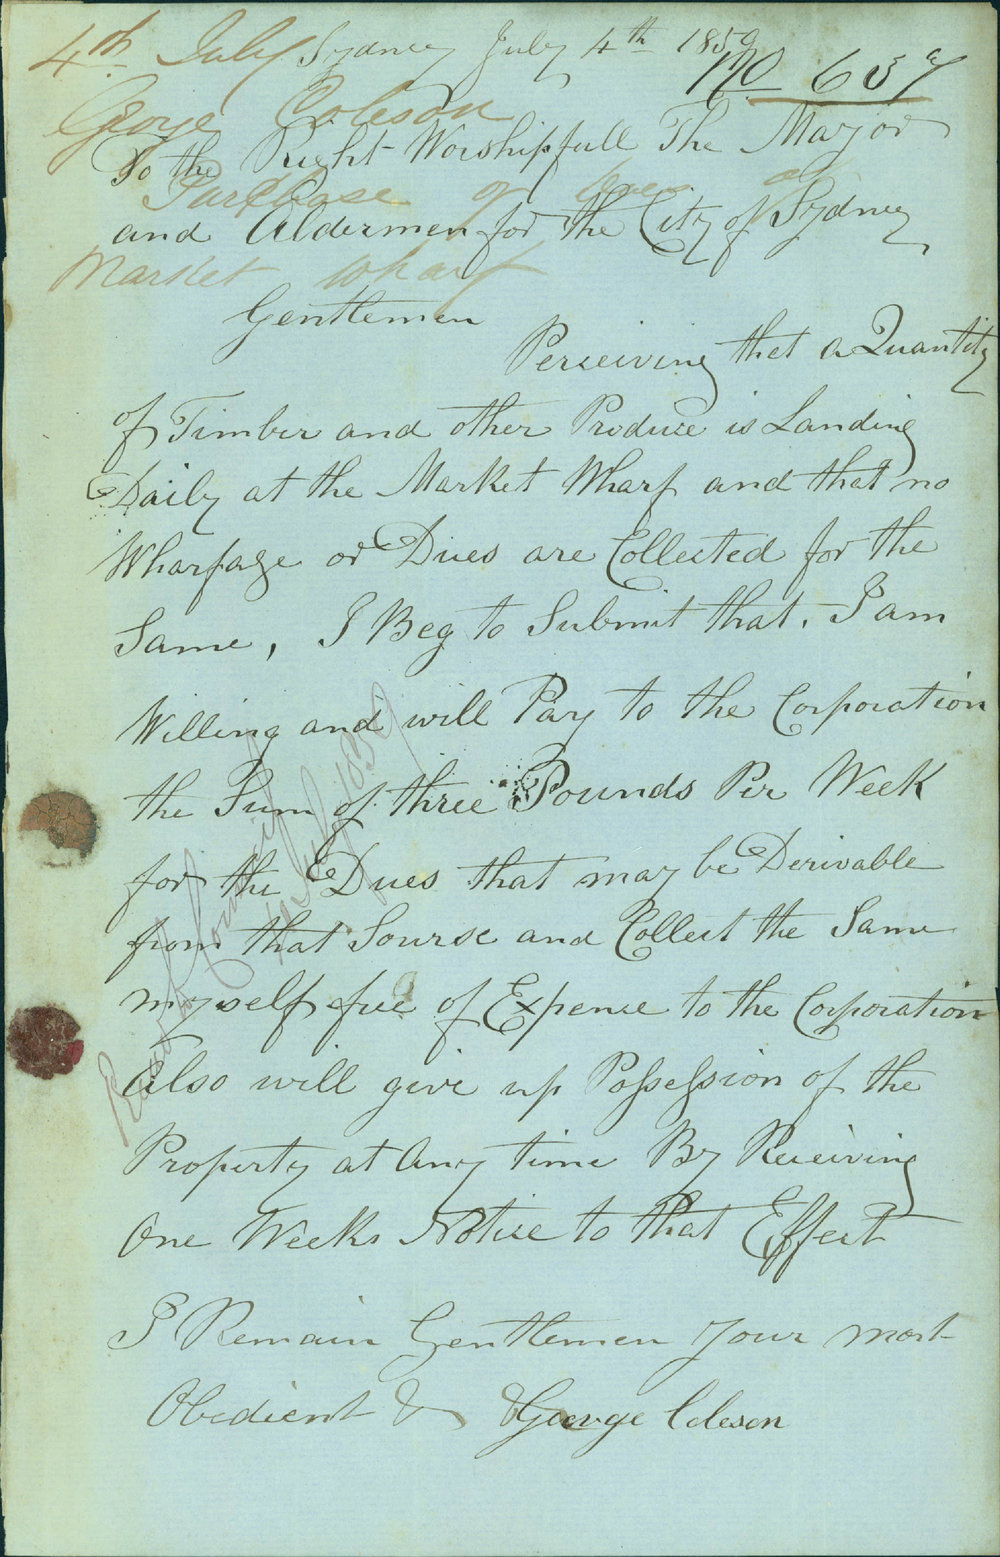 4th July
Sydney July 4th 1859
No 657
George Coleson
To the Right Worshipfull The Mayor
Purchase of dues at
and Aldermen for the City of Sydney
Market Wharf
Gentlemen
Perseiving that a Quantity
of Timber and other Produce is Landing
Daily at the Market Wharf and that no
Wharfage or Dues are Collected for the
Same, I Beg to Submit that. I am
Willing and will Pay to the Corporation
the Sum of three Pounds Per Week
for the Dues that may be Derivable
from that Sourse and Collect the Same
myself free of Expense to the Corporation
Also will give up Possession of the
Property at Any time By Receiving
One Weeks Notice to that Effect
I Remain Gentlemen Your most
Obedient &c &c George Coleson
Council
July 1859